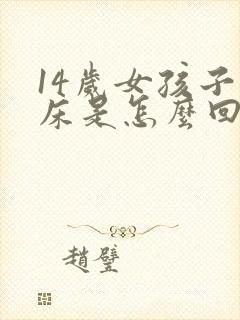 14歲女孩子
床是怎麼回
趙璧